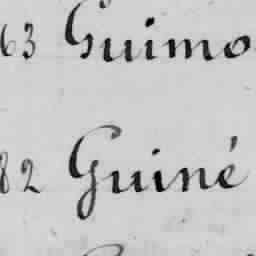 63 Guimo
82 Guiné